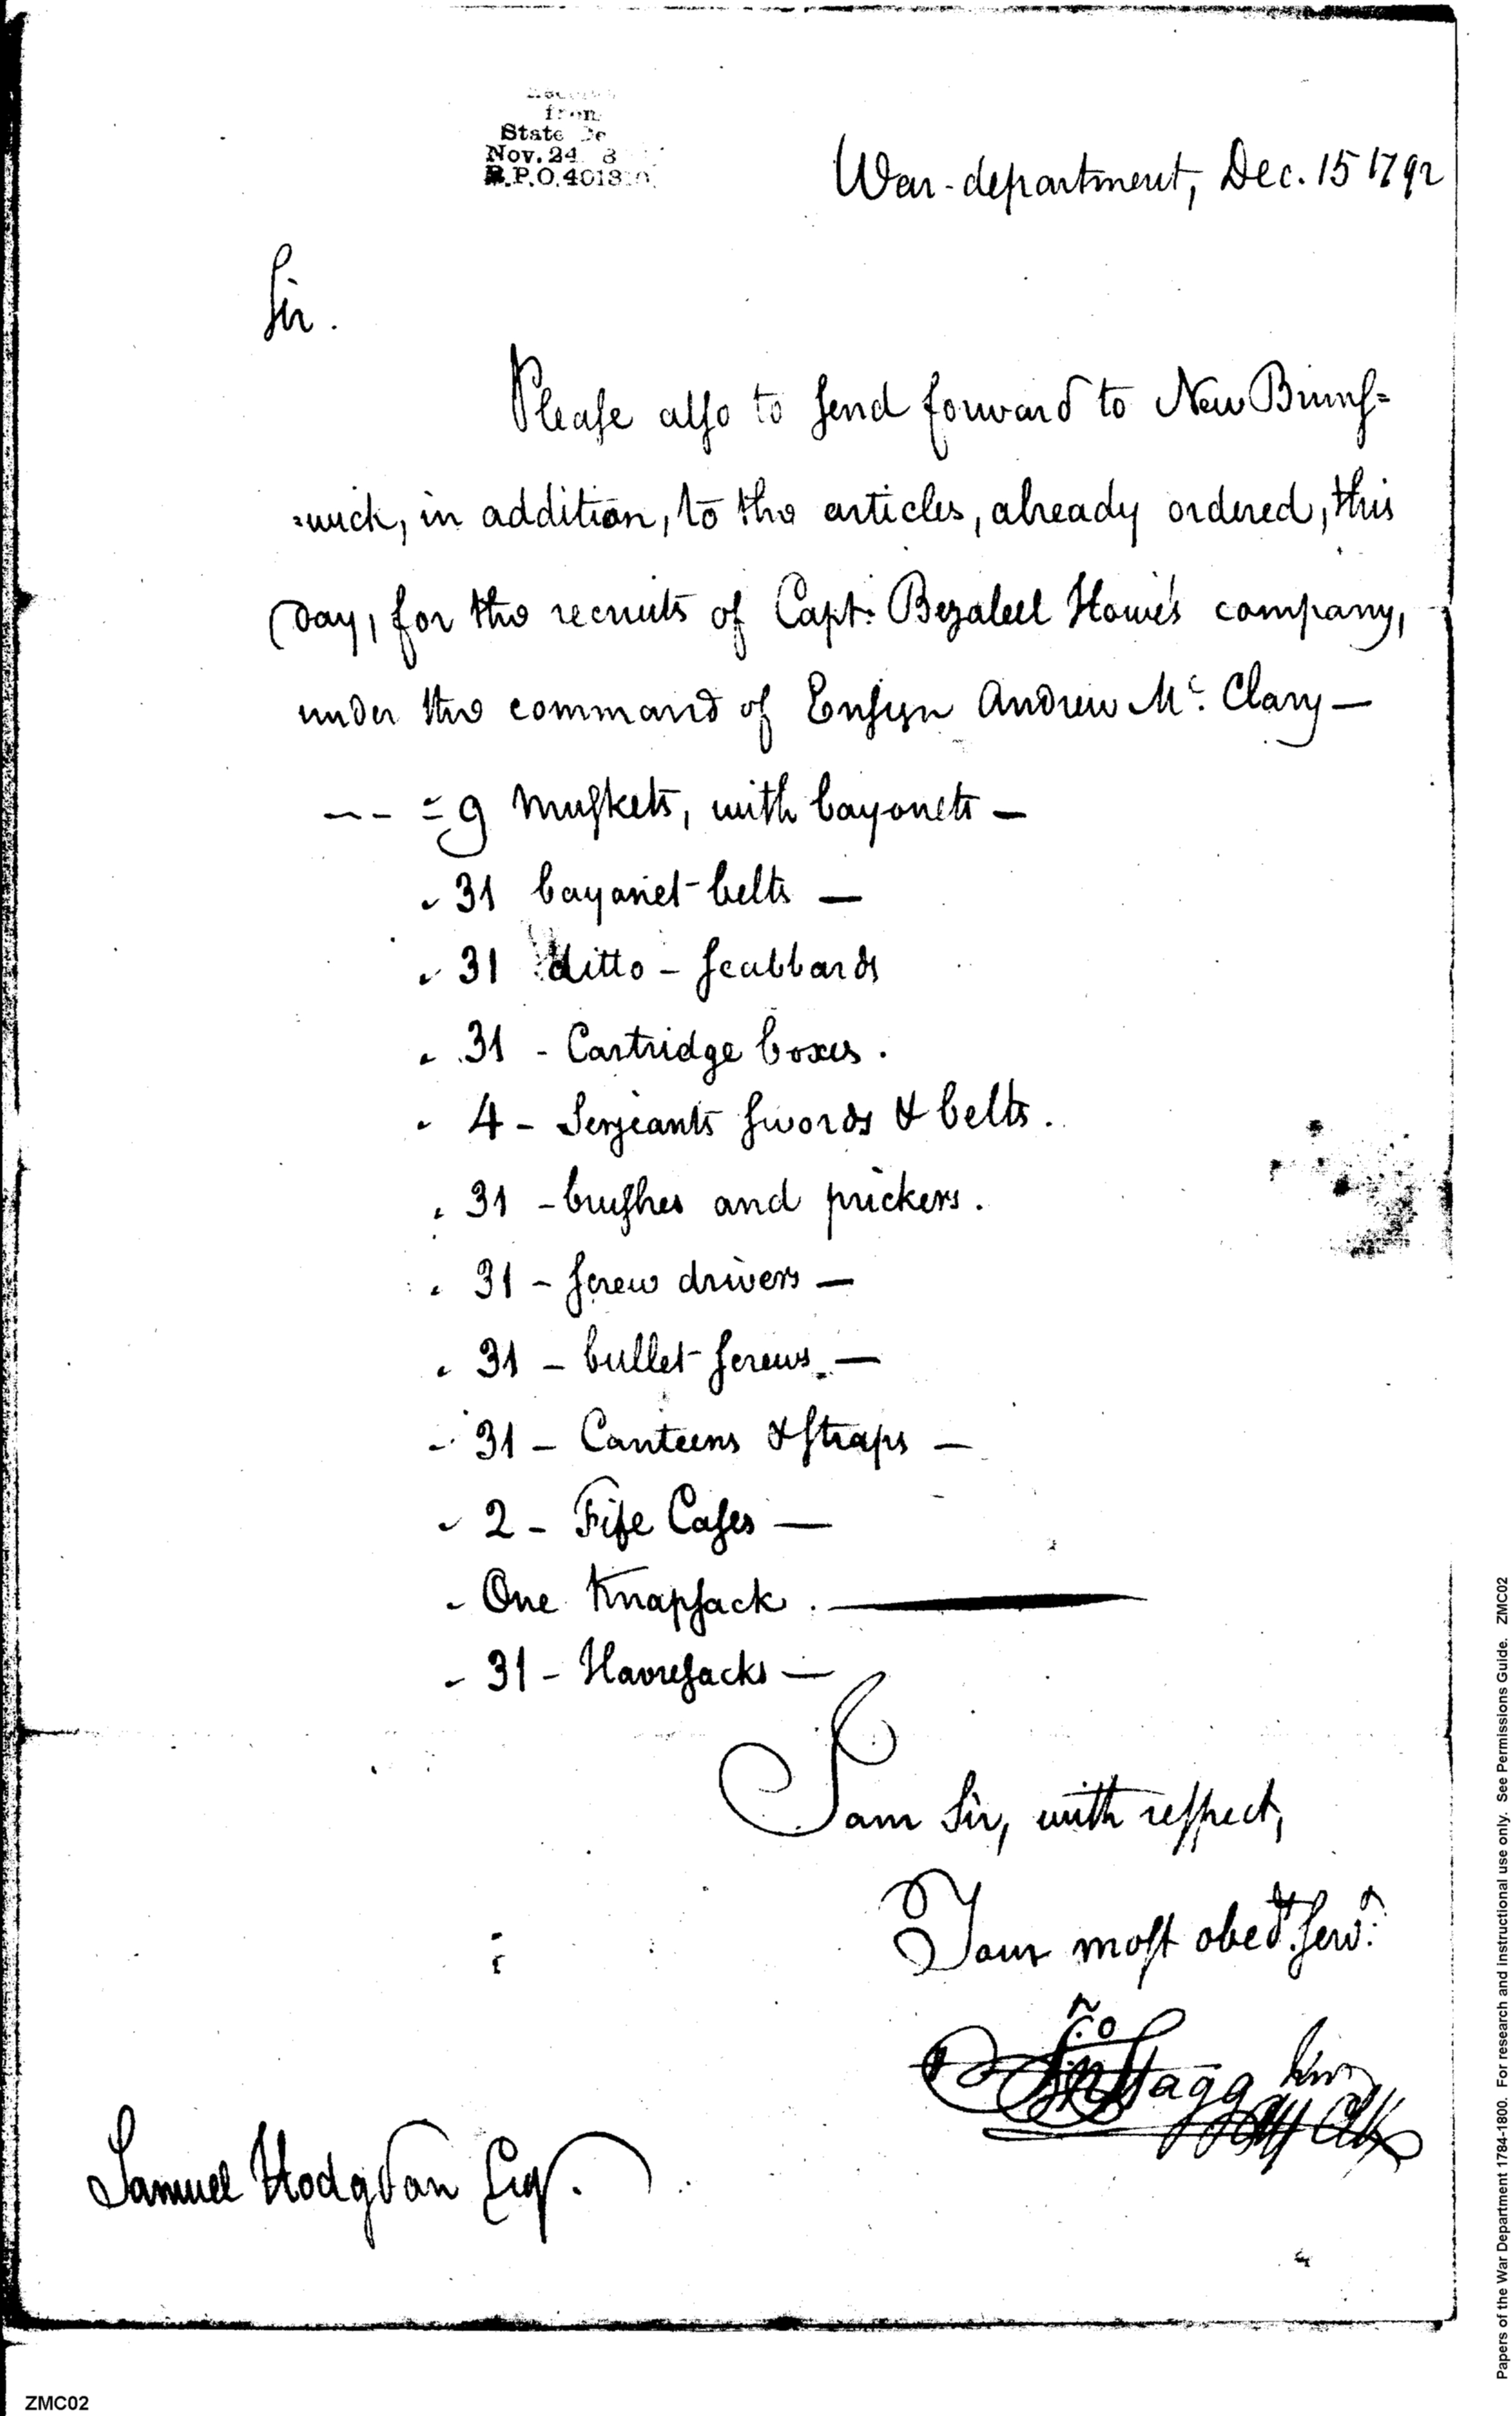 from
State De
Nov. 24
R.P.O. 401310
War-department, Dec. 15 1792
Sir.
Please also to send forward to New Bruns=
=wick, in addition, to the articles, already ordered, this
Day, for the recruits of Capt: Bezaleel Howe's company,
under the command of Ensign Andrew Mc. Clary —
-- = 9 muskets, with bayonets —
31 bayonet-belts —
31 ditto - scabbards
31 - Cartridge boxes.
4 - Serjeants swords & belts.
31 - brushes and prickers.
31 - screw drivers —
31 - bullet-screws —
31 - Canteens & straps —
2 - Fife Cases —
One Knapsack. —
31 - Havresacks —
I am Sir, with respect,
Your most obedt. servt.
Jno Stagg Junr
Samuel Hodgdon Esqr.
ZMC02
Papers of the War Department 1784-1800. For research and instructional use only. See Permissions Guide. ZMC02